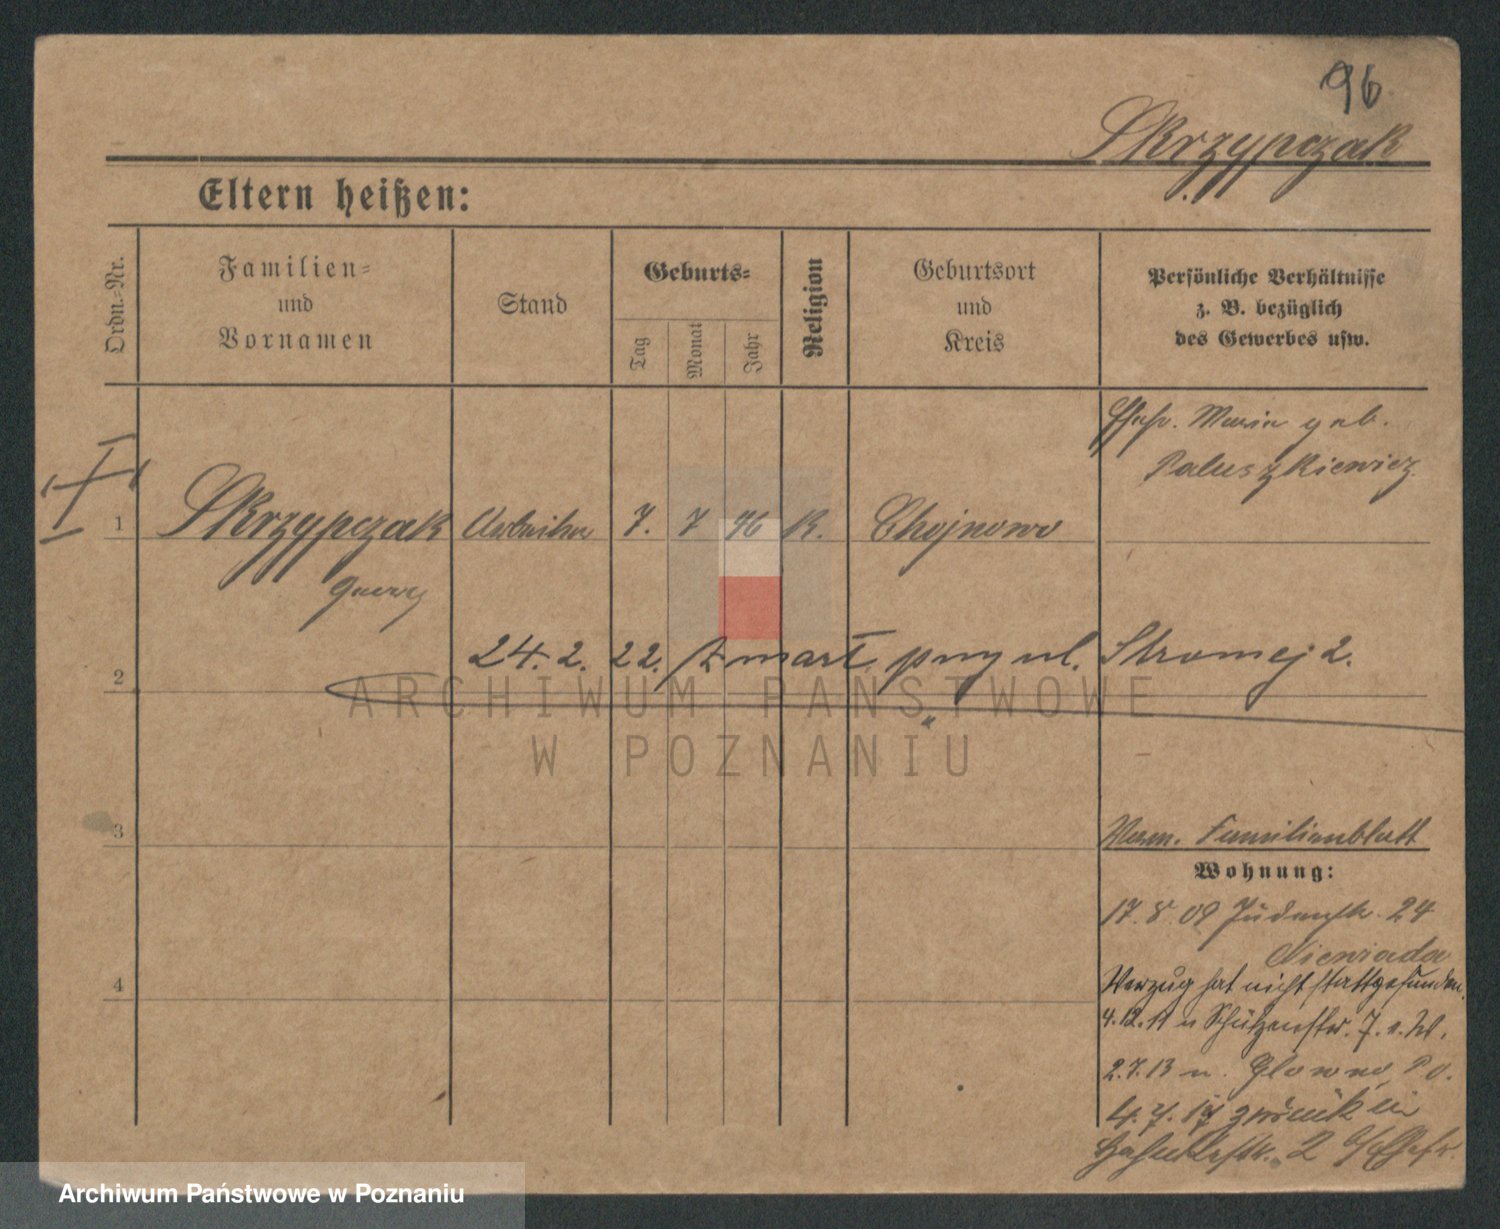 96
Skrzypczak
Eltern heißen:
Ordn.-Nr.
Familien-
und
Vornamen
Stand
Geburts-
Tag
Monat
Jahr
Religion
Geburtsort
und
Kreis
Persönliche Verhältnisse
z. B. bezüglich
des Gewerbes usw.
Ehefr. Maria geb.
Paluszkiewicz
1 Skrzypczak Arbeiter 7. 7 46 K. Chojnowo
24. 2. 22. zmarł. przy ul. Stromej 2.
2
ARCHIWUM PAŃSTWOWE
W POZNANIU
3
Verm. Familienblatt
Wohnung:
17. 8. 09 Judenstr. 24
Niewiada
4
Verzug hat nicht stattgefunden.
4.12.11 n Schützenstr. 7.
2.7.13 n. Glowno, Po.
4. 7. 17 zurück in
2 Ehefr.
Archiwum Państwowe w Poznaniu